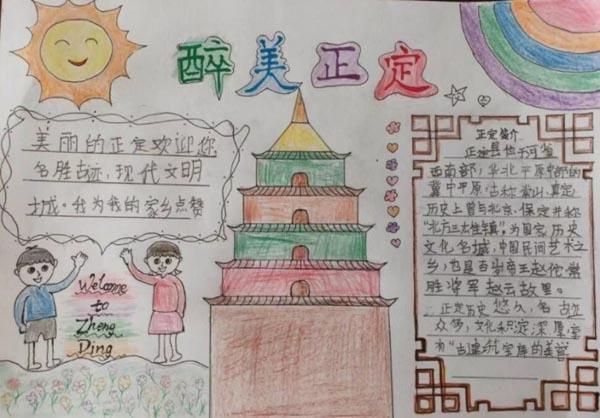 醉美正定
美丽的正定欢迎您
名胜古迹，现代文明
城。我为我的家乡点赞
Welcome
to
Zheng
Ding
正定简介
正定县位于河北省
西南部，华北平原中部的
冀中平原，古称常山，真定，
历史上曾与北京、保定并称
“北方三大雄镇”，为国家历史
文化名城，中国民间艺术之
乡，也是百岁帝王赵佗，常
胜将军赵云故里。
正定历史悠久，名胜古迹
众多，文化积淀深厚，堂
为“古建筑宝库的美誉